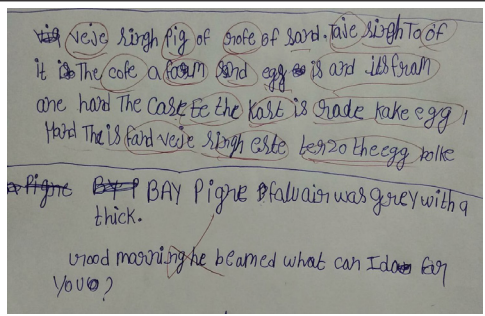 veje singh pig of orofe of sand. Taie singh To of
it is The cofe a farm sond egg is and itsfram
one hard The Case te the kast is grade kake egg,
Hard The is fard veije singh este ber20 the egg kolke
a Pigne BAY Pigne Ofaluair was grey with a
thick.
Urood morning he beamed what can I do far
YOU?